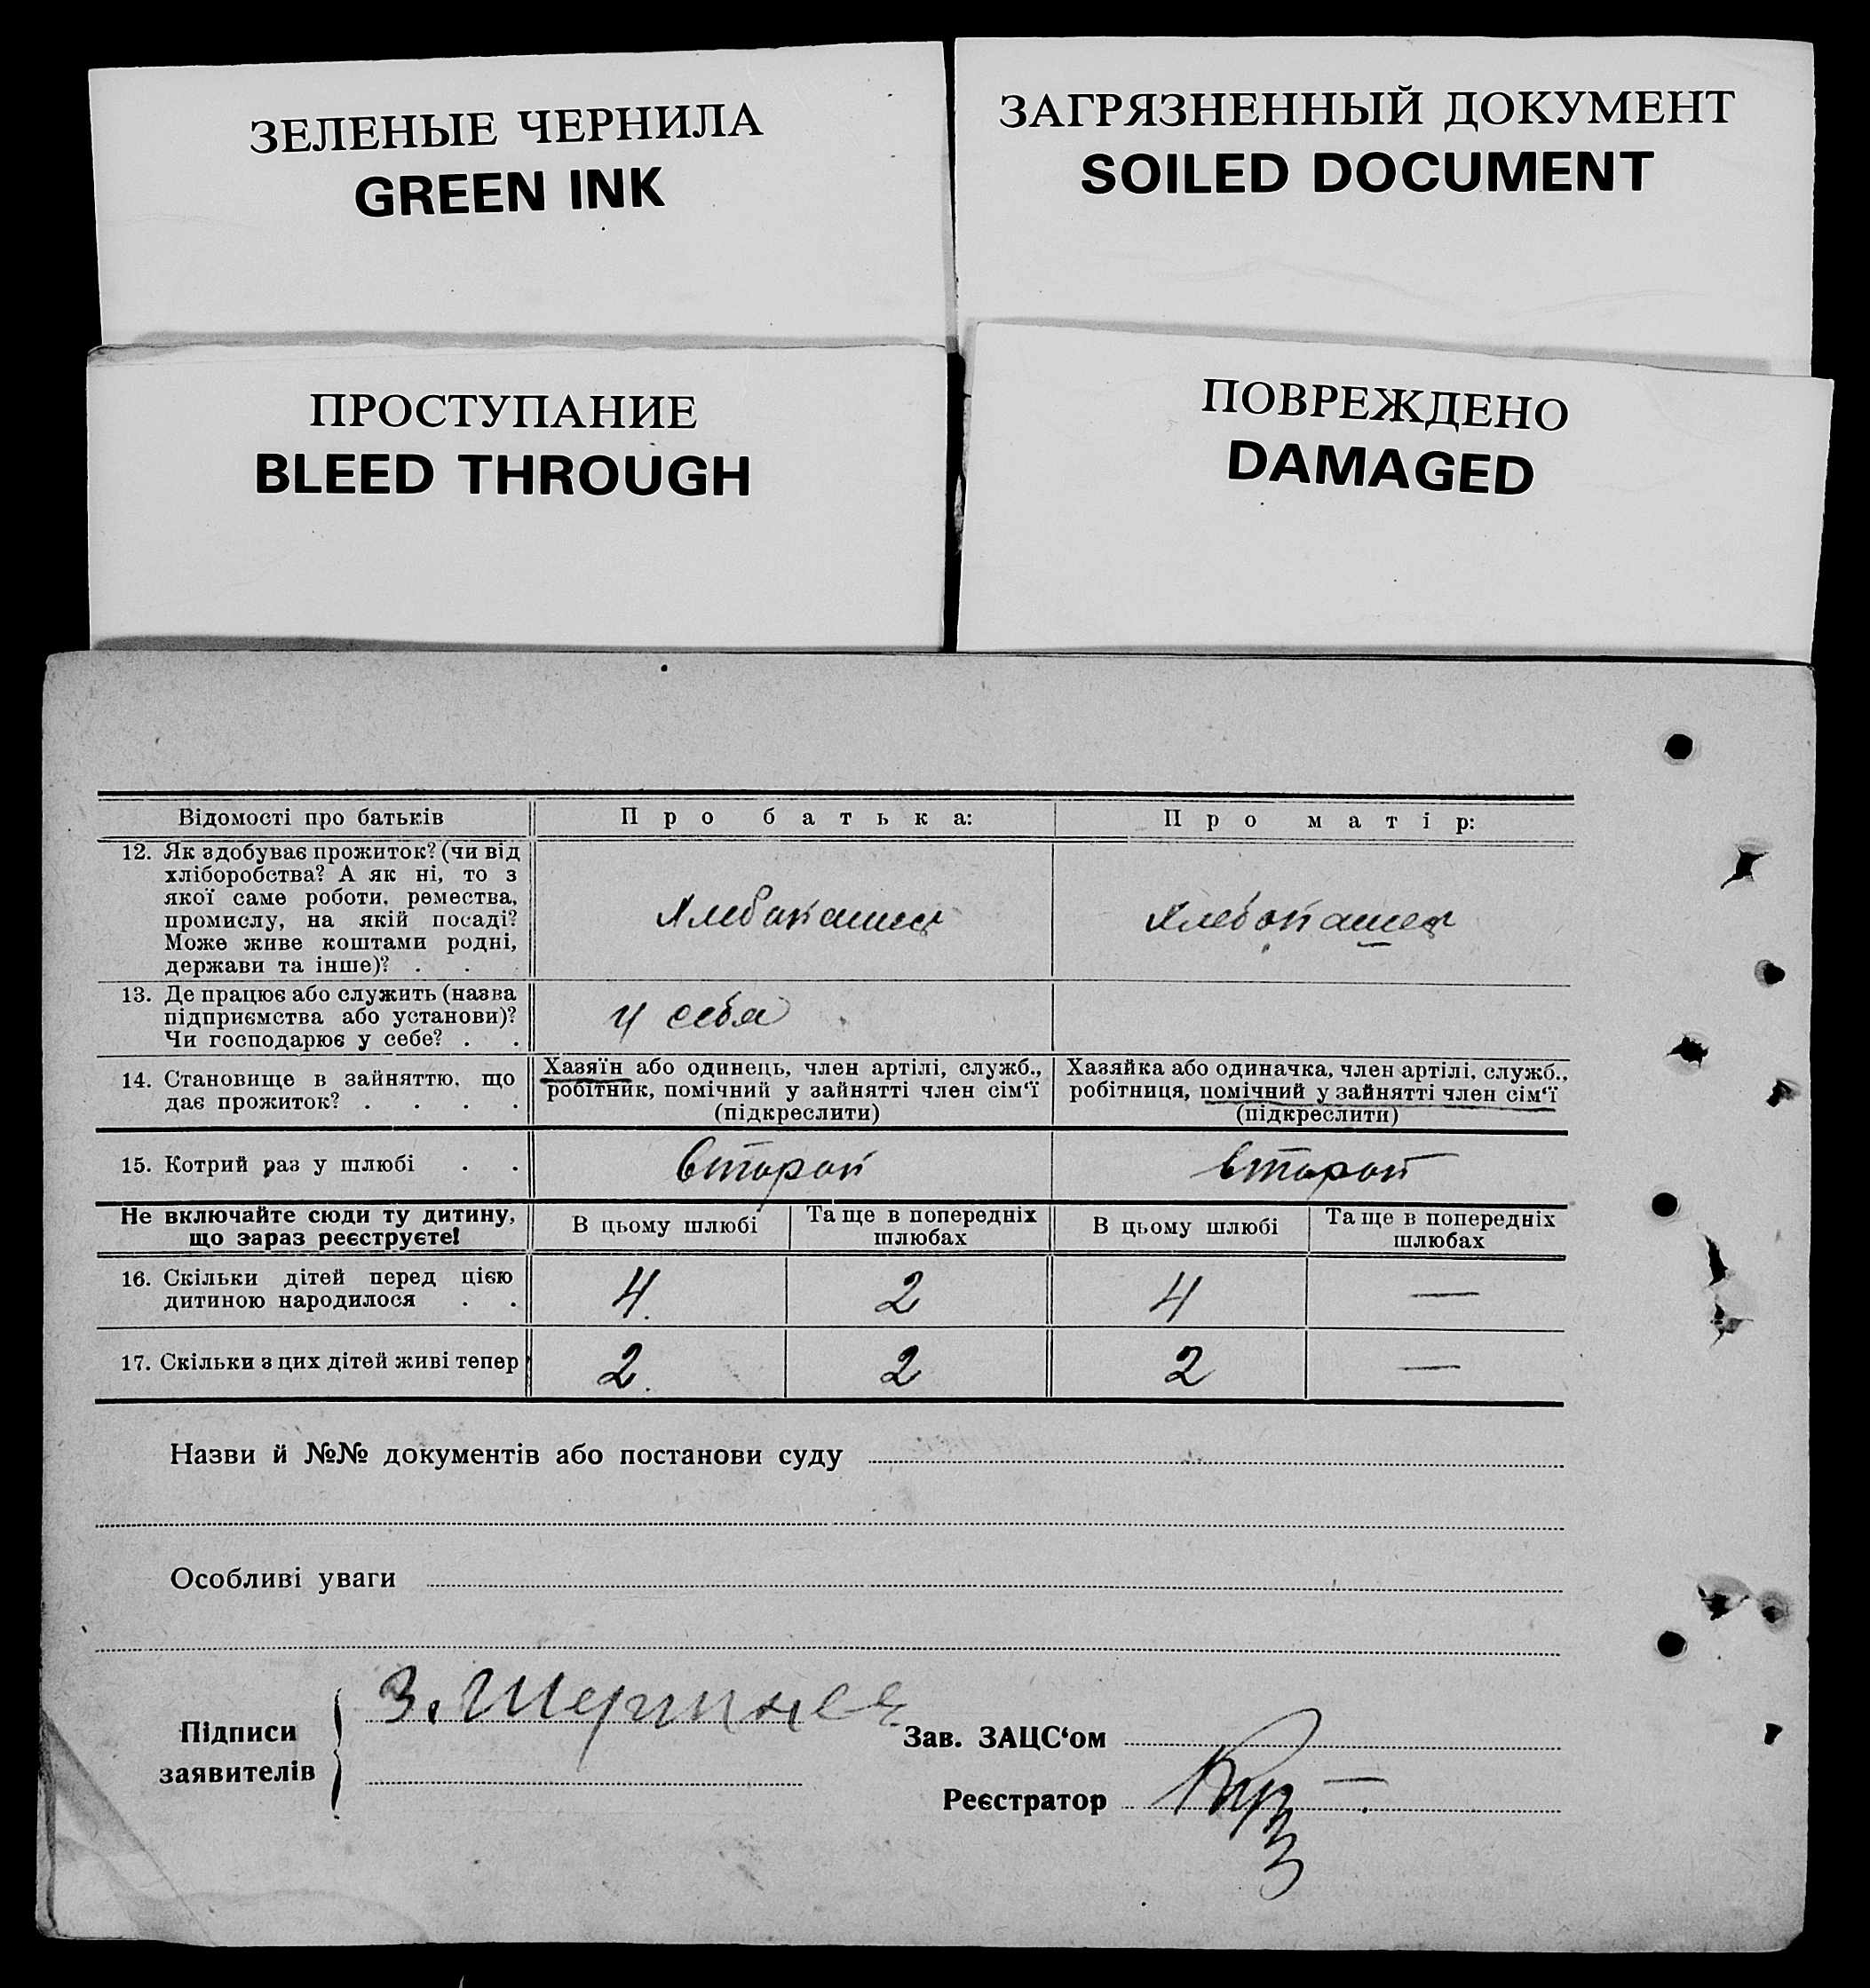 ЗЕЛЕНЫЕ ЧЕРНИЛА
GREEN INK
ЗАГРЯЗНЕННЫЙ ДОКУМЕНТ
SOILED DOCUMENT
ПРОСТУПАНИЕ
BLEED THROUGH
ПОВРЕЖДЕНО
DAMAGED
Відомості про батьків
Про батька:
Про матір:
12. Як здобуває прожиток? (чи від
хліборобства? А як ні, то з
якої саме роботи, ремества,
промислу, на якій посаді?
Може живе коштами родні,
держави та інше)? . .
Хлебопашец
Хлебопашец
13. Де працює або служить (назва
підприємства або установи)?
Чи господарює у себе? . .
у себя
14. Становище в зайняттю, що
дає прожиток? . . . .
Хазяїн або одинець, член артілі, служб.,
робітник, помічний у зайнятті член сім‘ї
(підкреслити)
Хазяйка або одиначка, член артілі, служб.,
робітниця, помічний у зайнятті член сім‘ї
(підкреслити)
15. Котрий раз у шлюбі . .
второй
второй
Не включайте сюди ту дитину,
що зараз реєструєте!
В цьому шлюбі
Та ще в попередніх
шлюбах
В цьому шлюбі
Та ще в попередніх
шлюбах
16. Скільки дітей перед цією
дитиною народилося . .
4. 2 4 —
17. Скільки з цих дітей живі тепер
2. 2 2 —
Назви й №№ документів або постанови суду
Особливі уваги
Підписи
заявителів
З.
Зав. ЗАЦС‘ом
Реєстратор